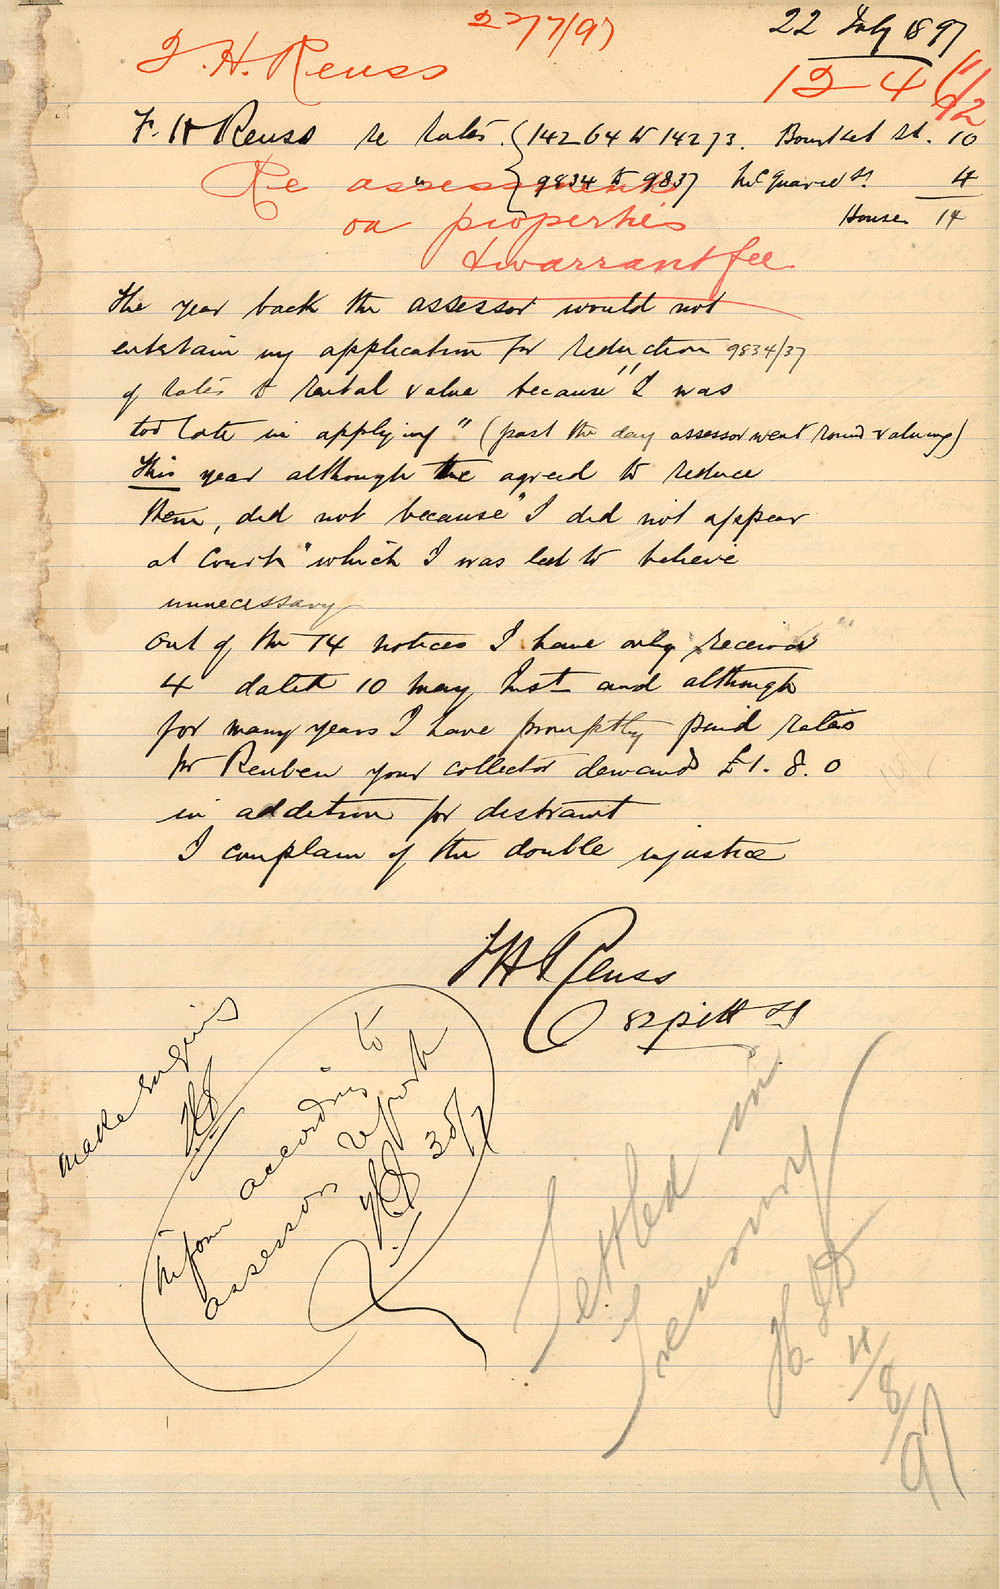 22/7/97
22 July 1897
F. H. Reuss
12-4
11/92
F. H Reuss re rates. { 14264 to 14273. Bourke St. 10
" } 9834 to 9837 McQuarie St. 4
Houses 14
Re assessments
on properties
& warrant fee
The year back the assessor would not
entertain my application for reduction 9834/37
of rates to rental value because "I was
too late in applying" (past the day assessor went round valuing)
This year although the agreed to reduce
them, did not because "I did not appear
at Court" which I was led to believe
unnecessary
Out of the 14 notices I have only received
4 dated 10 May Inst and although
for many years I have promptly paid rates
Mr Reuben your collector demands £1. 8. 0
in addition for distraint
I complain of the double injustice
F H Reuss
82 Pitt St
make enquiries
Inform according to
assessors report
30/7
Settled in
Treasury
4/8/97